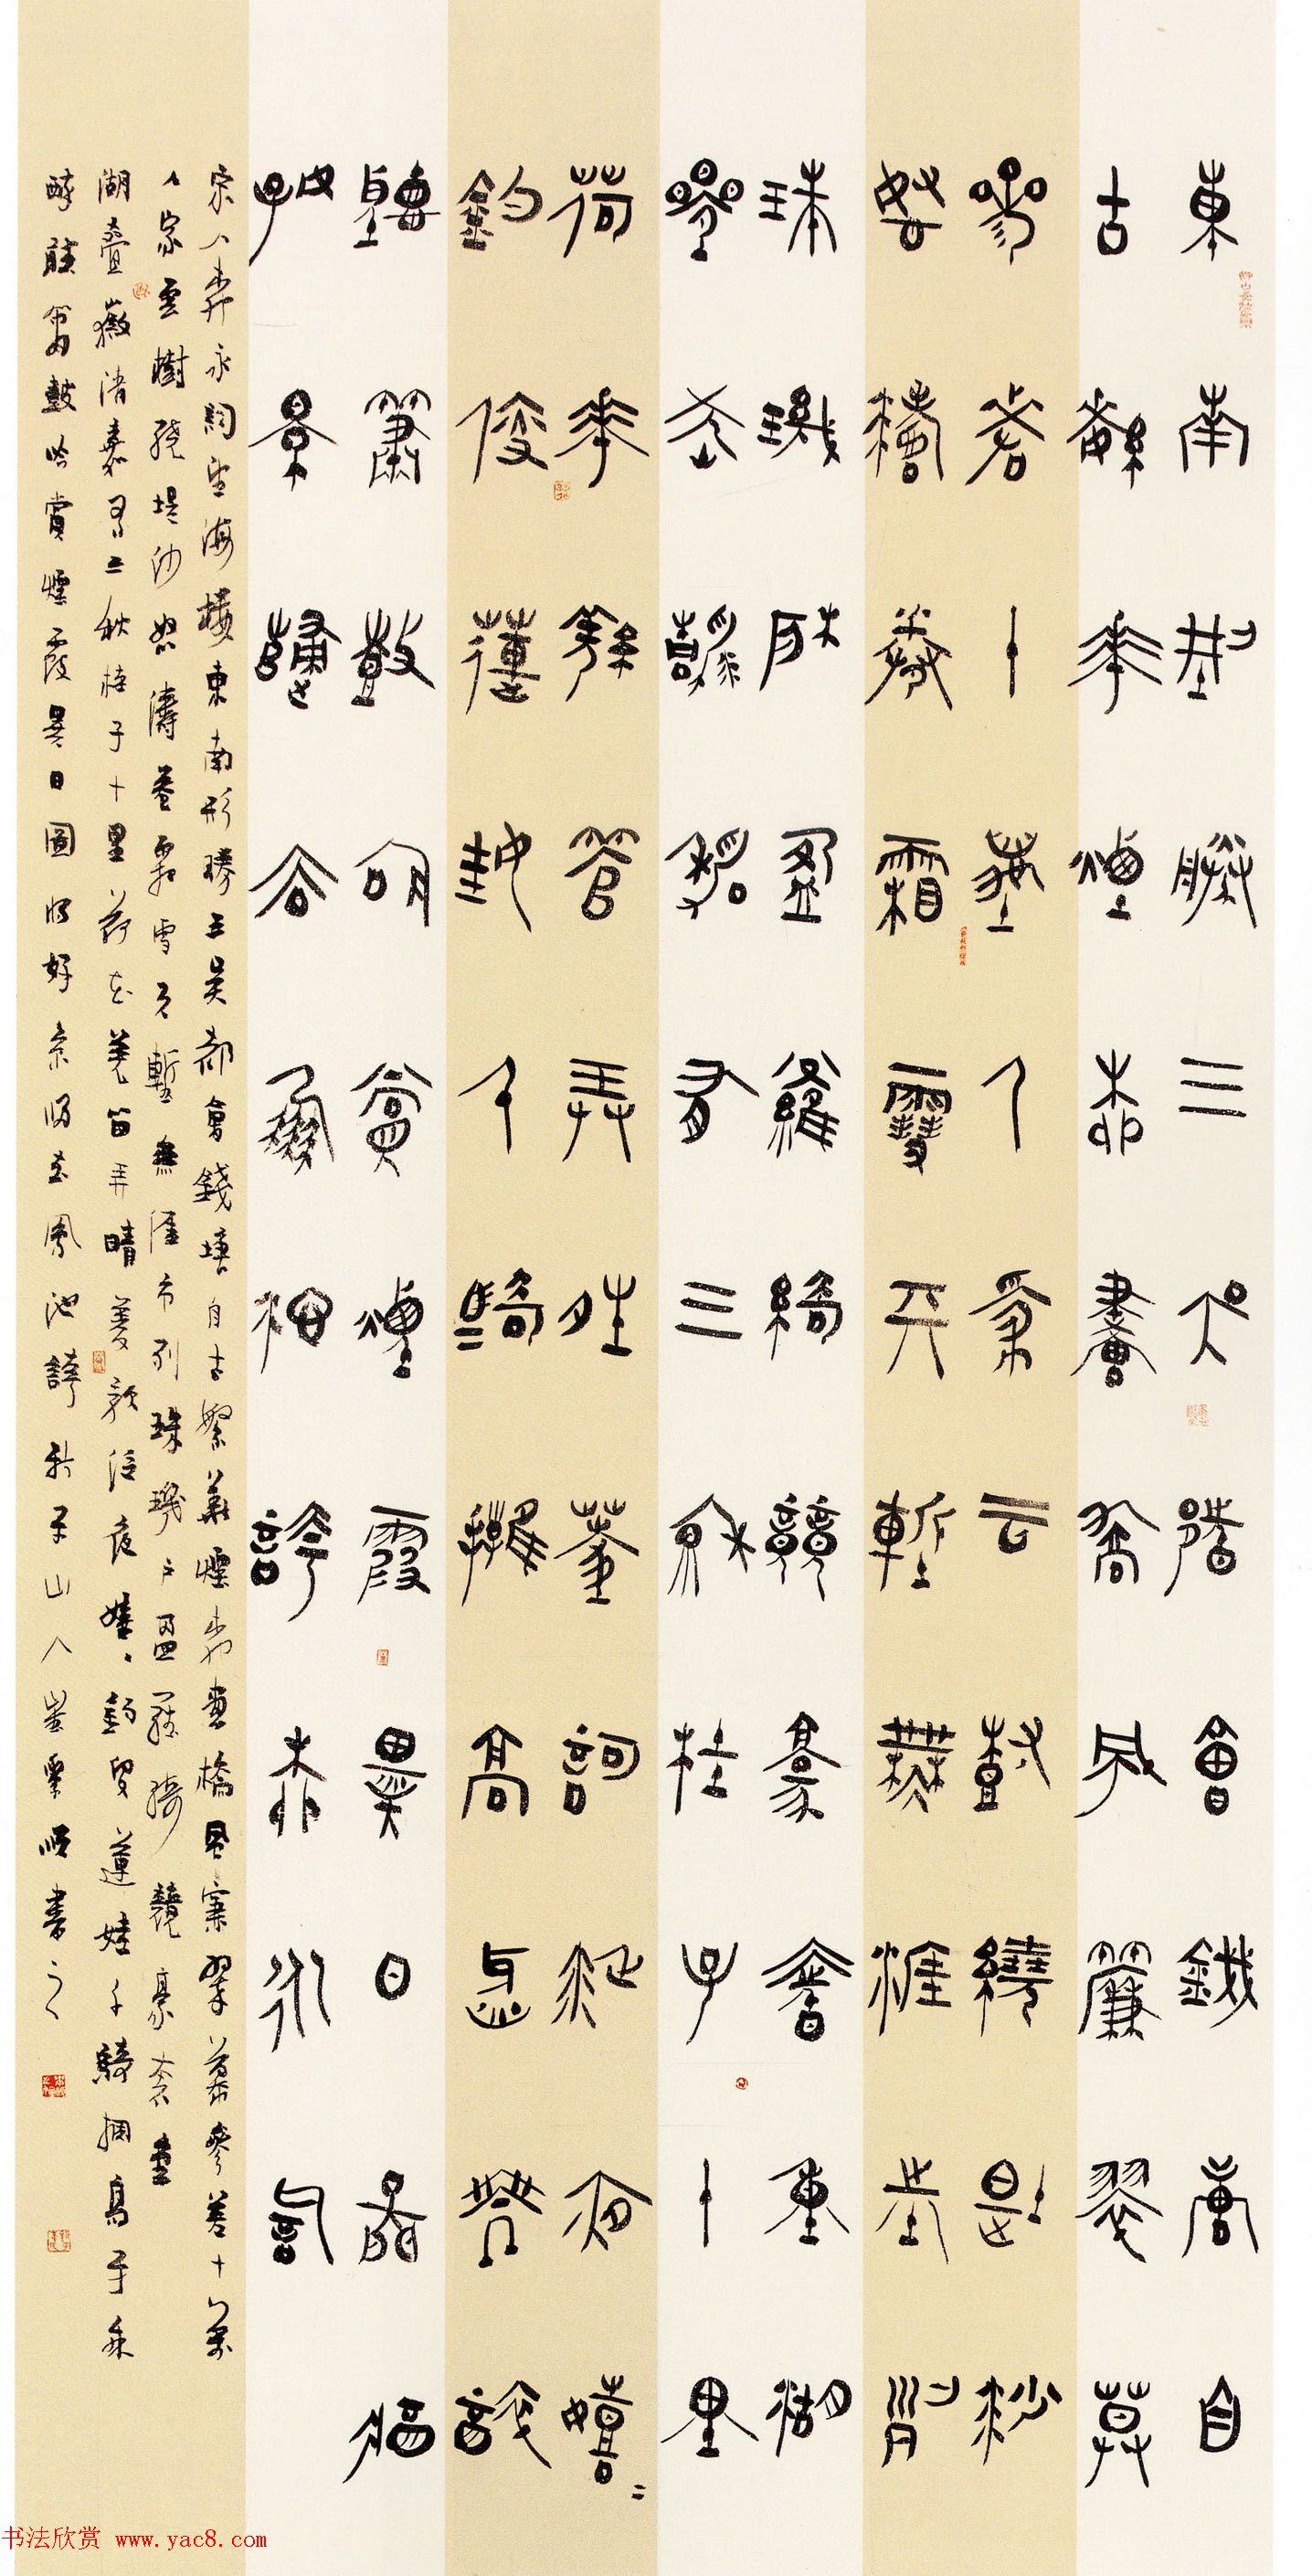 東南形勝三吳都會錢唐自
古繁華煙柳畫橋風簾翠幕
參差十萬人家云樹繞堤沙
怒濤卷霜雪天塹無涯市列
珠璣戶盈羅綺競豪奢重湖
疊巘清嘉有三秋桂子十里
荷花羌管弄晴菱歌泛夜嬉〻
釣叟蓮娃千騎擁高牙乘醉
聽簫鼓吟賞煙霞異日圖將
好景歸去鳳池誇柳永詞
宋人柳永詞望海樓東南形勝三吳都會錢塘自古繁華煙柳畫橋風簾翠幕參差十萬
人家雲樹繞堤沙怒濤卷霜雪天塹無涯市列珠璣戶盈羅綺競豪奢重
湖疊巘清嘉有三秋桂子十里荷花羌笛弄晴菱歌泛夜嬉〻釣叟蓮娃千騎擁高牙乘
醉聽簫鼓吟賞煙霞異日圖將好景歸去鳳池誇 山人 書之
书法欣赏 www.yac8.com